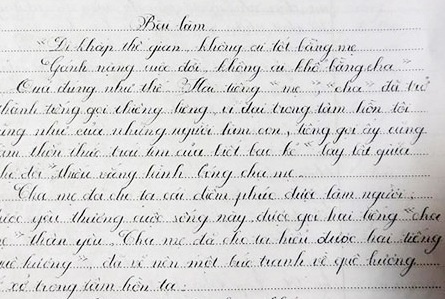 Bài làm
"Đi khắp thế gian, không ai tốt bằng mẹ
Gánh nặng cuộc đời, không ai khổ bằng cha"
Quả đúng như thế. Hai tiếng "mẹ", "cha" đã trở
thành tiếng gọi thiêng liêng, vĩ đại trong tâm hồn tôi
cũng như của những người làm con, tiếng gọi ấy cũng
làm thổn thức trái tim của biết bao kẻ lạy bơ giữa
đời thiếu vắng hình bóng cha mẹ.
Cha mẹ đã cho ta cái diễm phúc được làm người,
được yêu thương cuộc sống này, được gọi hai tiếng "cha
mẹ" thân yêu. Cha mẹ đã cho ta hiểu được hai tiếng
quê hương", đã vẽ nên một bức tranh về quê hương
trong tâm hồn ta.